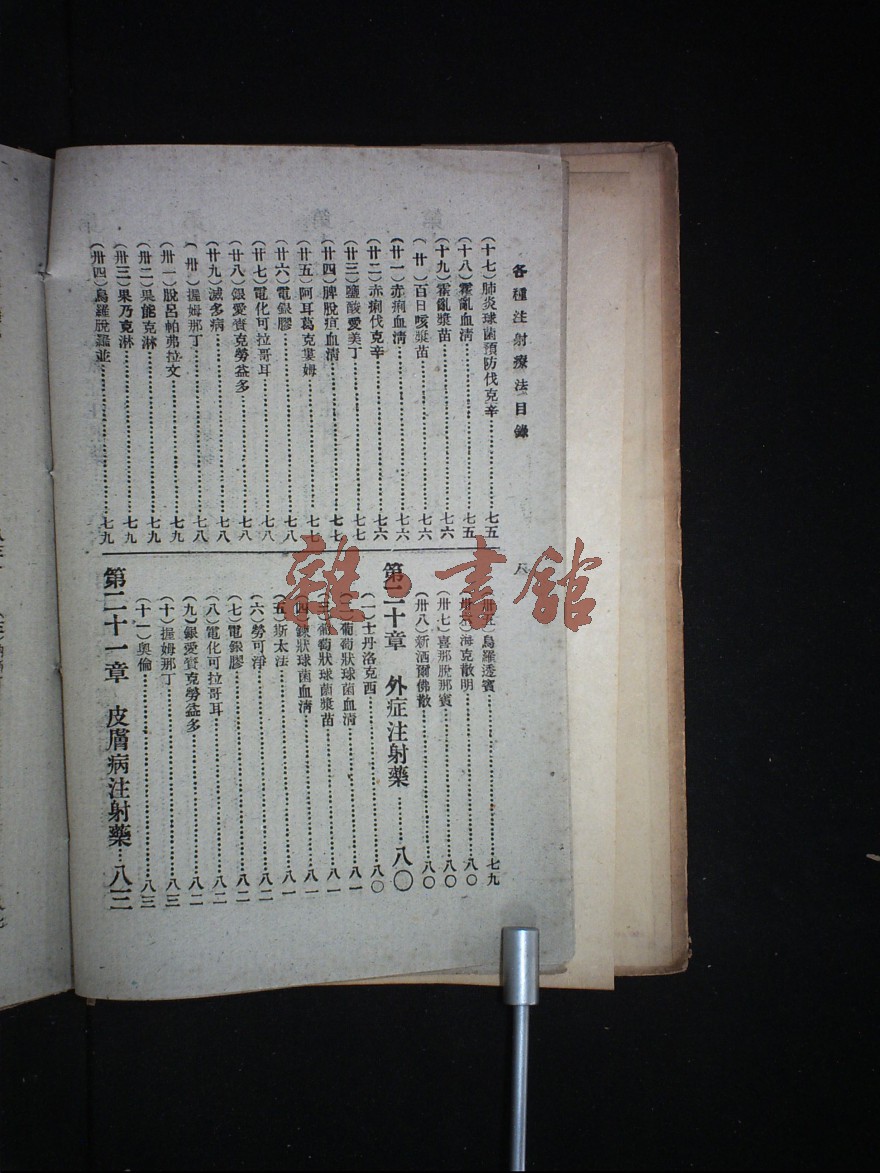 各種注射療法目錄
八
(十七)肺炎球菌預防伐克辛……七五
(十八)霍亂血清……七五
(十九)霍亂漿苗……七六
(廿)百日咳漿苗……七六
(廿一)赤痢血清……七六
(廿二)赤痢伐克辛……七六
(廿三)鹽酸愛美丁……七七
(廿四)脾脫疽血清……七七
(廿五)阿耳葛克婁姆……七七
(廿六)電銀膠……七八
(廿七)電化可拉哥耳……七八
(廿八)銀愛賚克勞益多……七八
(廿九)滅多病……七八
(卅)握姆那丁……七八
(卅一)脫呂帕弗拉文……七九
(卅二)果能克淋……七九
(卅三)果乃克淋……七九
(卅四)烏羅脫羅並……七九
(卅五)烏羅透賓……七九
(卅六)海克散明……八〇
(卅七)喜那脫那賓……八〇
(卅八)新洒爾佛散……八〇
第二十章 外症注射藥……八〇
(一)士丹洛克西……八〇
(二)葡萄狀球菌血清……八一
(三)葡萄狀球菌漿苗……八一
(四)鍊狀球菌血清……八一
(五)斯太法……八一
(六)勞可淨……八二
(七)電銀膠……八二
(八)電化可拉哥耳……八二
(九)銀愛賚克勞益多……八二
(十)握姆那丁……八三
(十一)奧倫……八三
第二十一章 皮膚病注射藥……八三
雜·書館